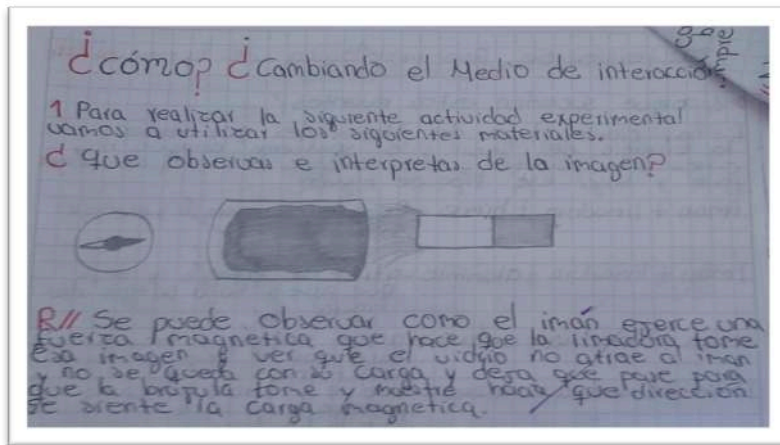 ¿cómo? ¿Cambiando el Medio de interacción
1 Para realizar la siguiente actividad experimental
vamos a utilizar los siguientes materiales.
¿ que observas e interpretas de la imagen?
R// Se puede observar como el imán ejerce una
fuerza magnetica que hace que la limadora tome
esa imagen y ver que el vidrio no atrae al iman
y no se queda con su carga y deja que pase para
que la brujula tome y muestre hacia que dirección
se siente la carga magnetica.